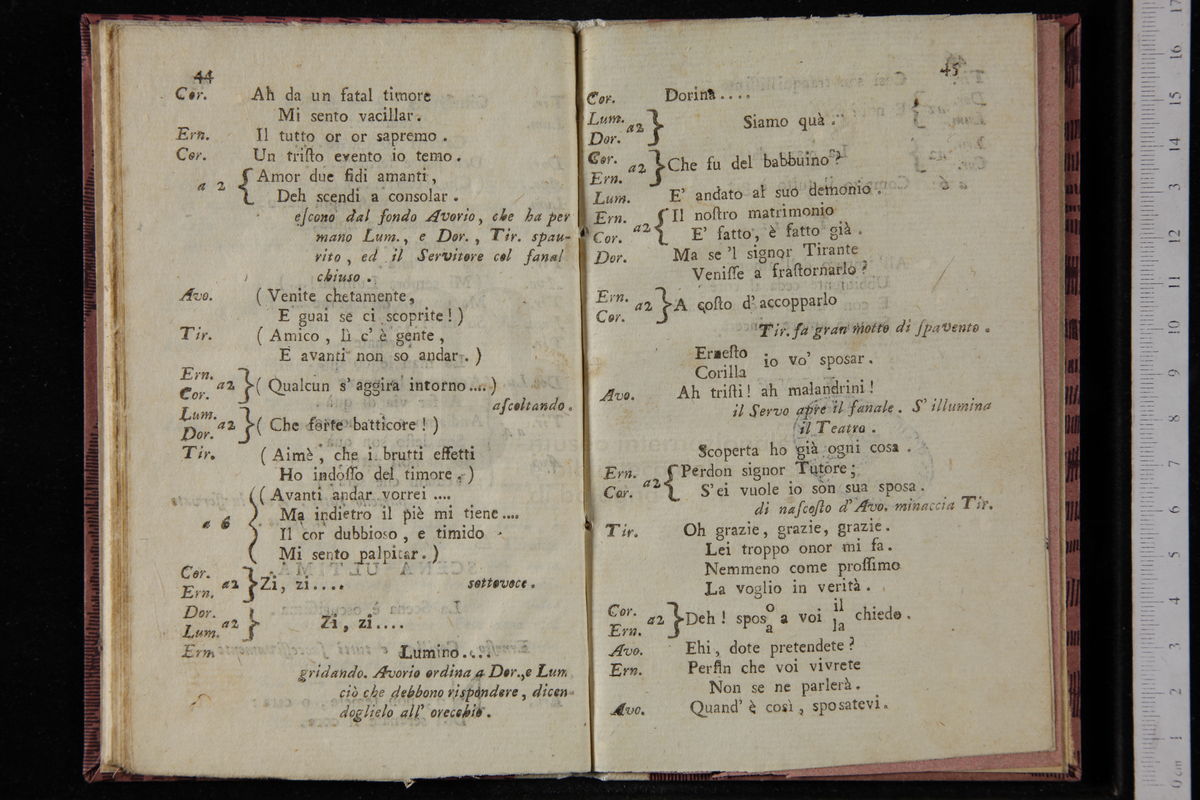 44
Cor. Ah da un fatal timore
Mi sento vacillar.
Ern. Il tutto or or sapremo.
Cor. Un tristo evento io temo.
a 2 { Amor due fidi amanti,
Deh scendi a consolar.
escono dal fondo Avorio, che ha per
mano Lum., e Dor., Tir. spau-
rito, ed il Servitore col fanal
chiuso.
Avo. (Venite chetamente,
E guai se ci scoprite!)
Tir. (Amico, lì c' è gente,
E avanti non so andar.)
Ern.
Cor. a2 } (Qualcun s' aggira intorno....)
ascoltando.
Lum.
Dor. a2 } (Che forte batticore!)
Tir. (Aimè, che i brutti effetti
Ho indosso del timore.)
a 6 ( (Avanti andar vorrei ....
Ma indietro il piè mi tiene ....
Il cor dubbioso, e timido
Mi sento palpitar.)
Cor.
Ern. a2 } Zi, zi.... sottovoce.
Dor.
Lum. a2 } Zi, zi....
Ern. Lumino....
gridando. Avorio ordina a Dor., e Lum.
ciò che debbono rispondere, dicen-
doglielo all' orecchio.
45
Cor. Dorina....
Lum.
Dor. a2 } Siamo quà.
Cor.
Ern. a2 } Che fu del babbuino?
Lum. E' andato al suo demonio.
Ern. a2 { Il nostro matrimonio
Cor. E' fatto, è fatto già.
Dor. Ma se 'l signor Tirante
Venisse a frastornarlo?
Ern.
Cor. a2 } A costo d' accopparlo
Tir. fa gran motto di spavento.
Ernesto
Corilla io vo' sposar.
Avo. Ah tristi! ah malandrini!
il Servo apre il fanale. S' illumina
il Teatro.
Scoperta ho già ogni cosa.
Ern. a2 { Perdon signor Tutore;
Cor. S' ei vuole io son sua sposa.
di nascosto d' Avo. minaccia Tir.
Tir. Oh grazie, grazie, grazie.
Lei troppo onor mi fa.
Nemmeno come prossimo
La voglio in verità.
Cor.
Ern. a2 } Deh! spos o a a voi il la chiedo.
Avo. Ehi, dote pretendete?
Ern. Perfin che voi vivrete
Non se ne parlerà.
Avo. Quand' è così, sposatevi.
17
16
15
14
13
12
11
10
9
8
7
6
5
4
3
2
1
0 cm